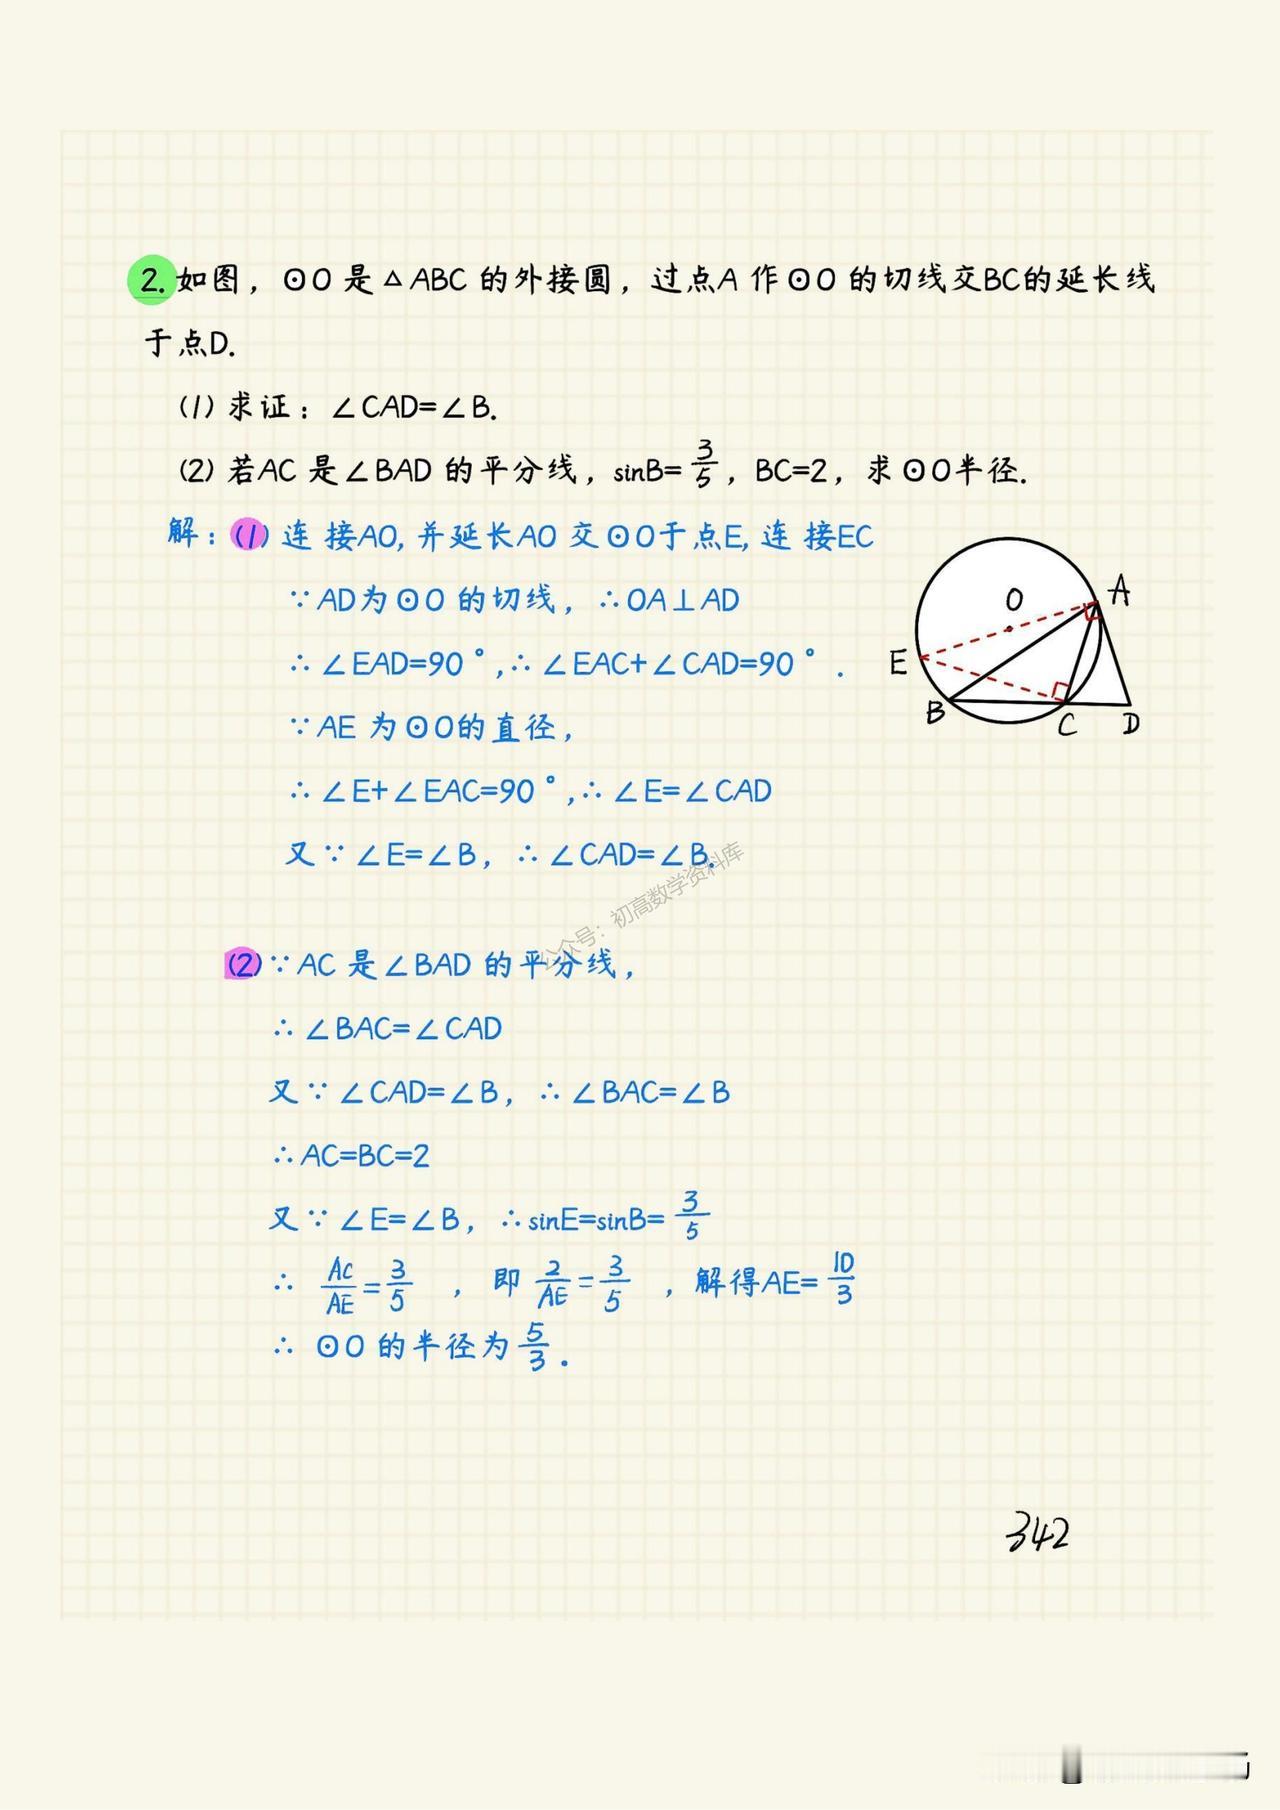 2. 如图，⊙O 是△ABC 的外接圆，过点A 作⊙O 的切线交BC的延长线
于点D.
(1) 求证：∠CAD=∠B.
(2) 若AC 是∠BAD 的平分线，sinB=3/5，BC=2，求⊙O半径.
解：(1) 连接AO,并延长AO 交⊙O于点E,连接EC
∵AD为⊙O 的切线，∴OA⊥AD
∴∠EAD=90°,∴∠EAC+∠CAD=90°.
∵AE 为⊙O的直径，
∴∠E+∠EAC=90°,∴∠E=∠CAD
又∵∠E=∠B，∴∠CAD=∠B.
O
A
E
B
C
D
公众号：初高数学资料库
(2)∵AC 是∠BAD 的平分线，
∴∠BAC=∠CAD
又∵∠CAD=∠B，∴∠BAC=∠B
∴AC=BC=2
又∵∠E=∠B，∴sinE=sinB=3/5
∴ AC/AE=3/5，即 2/AE=3/5，解得AE=10/3
∴ ⊙O 的半径为5/3.
342